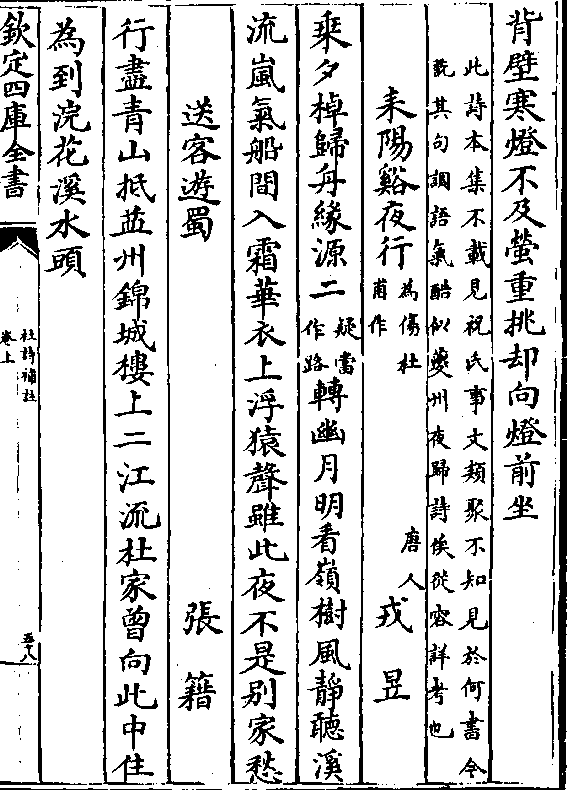 背壁寒燈不及螢重挑却向燈前坐
此詩本集不載見祝氏事文類聚不知見於何書今
翫其句調語氣酷似夔州夜歸詩俟從容詳考也
耒陽谿夜行為傷杜甫作 唐人戎昱
乗夕棹歸舟緣源二疑當作路轉幽月明看嶺樹風靜聽溪
流嵐氣船間入霜華衣上浮猿聲雖此夜不是别家愁
送客遊蜀 張籍
行盡青山抵益州錦城樓上二江流杜家曾向此中住
為到浣花溪水頭
欽定四庫全書
杜詩補註
卷上
五八